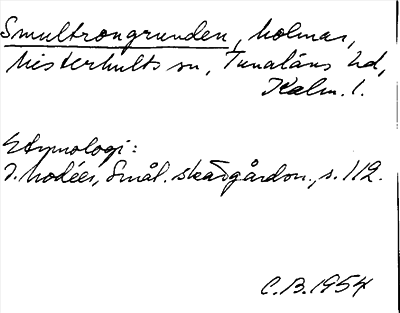 Smultrongrunden, holmar,
Misterhults sn, Tunaläns hd,
Kalm. l.
Etymologi:
I. Modéer, Smål. skärgårdsn., s. 112.
C.B. 1954